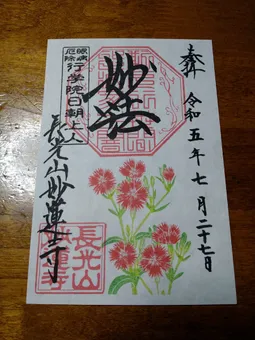 奉拝
令和五年七月二十七日
妙法
眼病
厄除
行学院日朝上人
長光山妙蓮寺
長光山
妙蓮寺